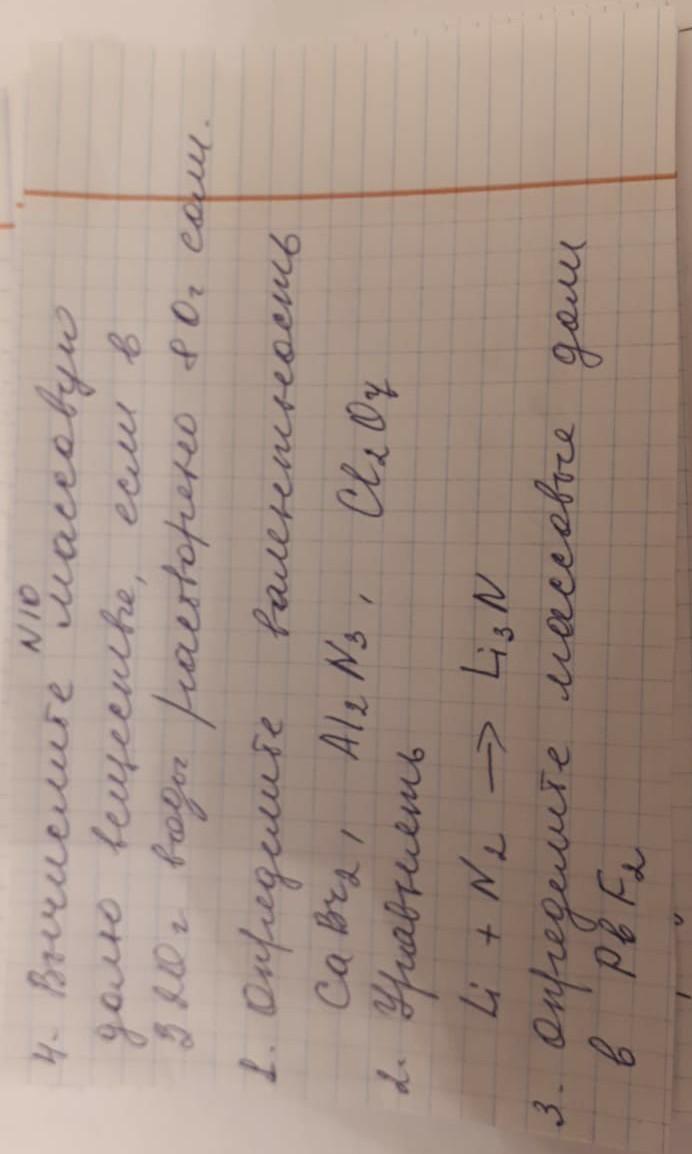 N10
4. Вычислите массовую
долю вещества, если в
320 г воды растворено 80 г соли.
1. Определите валентность
CaBr2, Al2N3, Cl2O7
2. Уравнять
Li + N2 → Li3N
3. Определите массовые доли
в PbF2